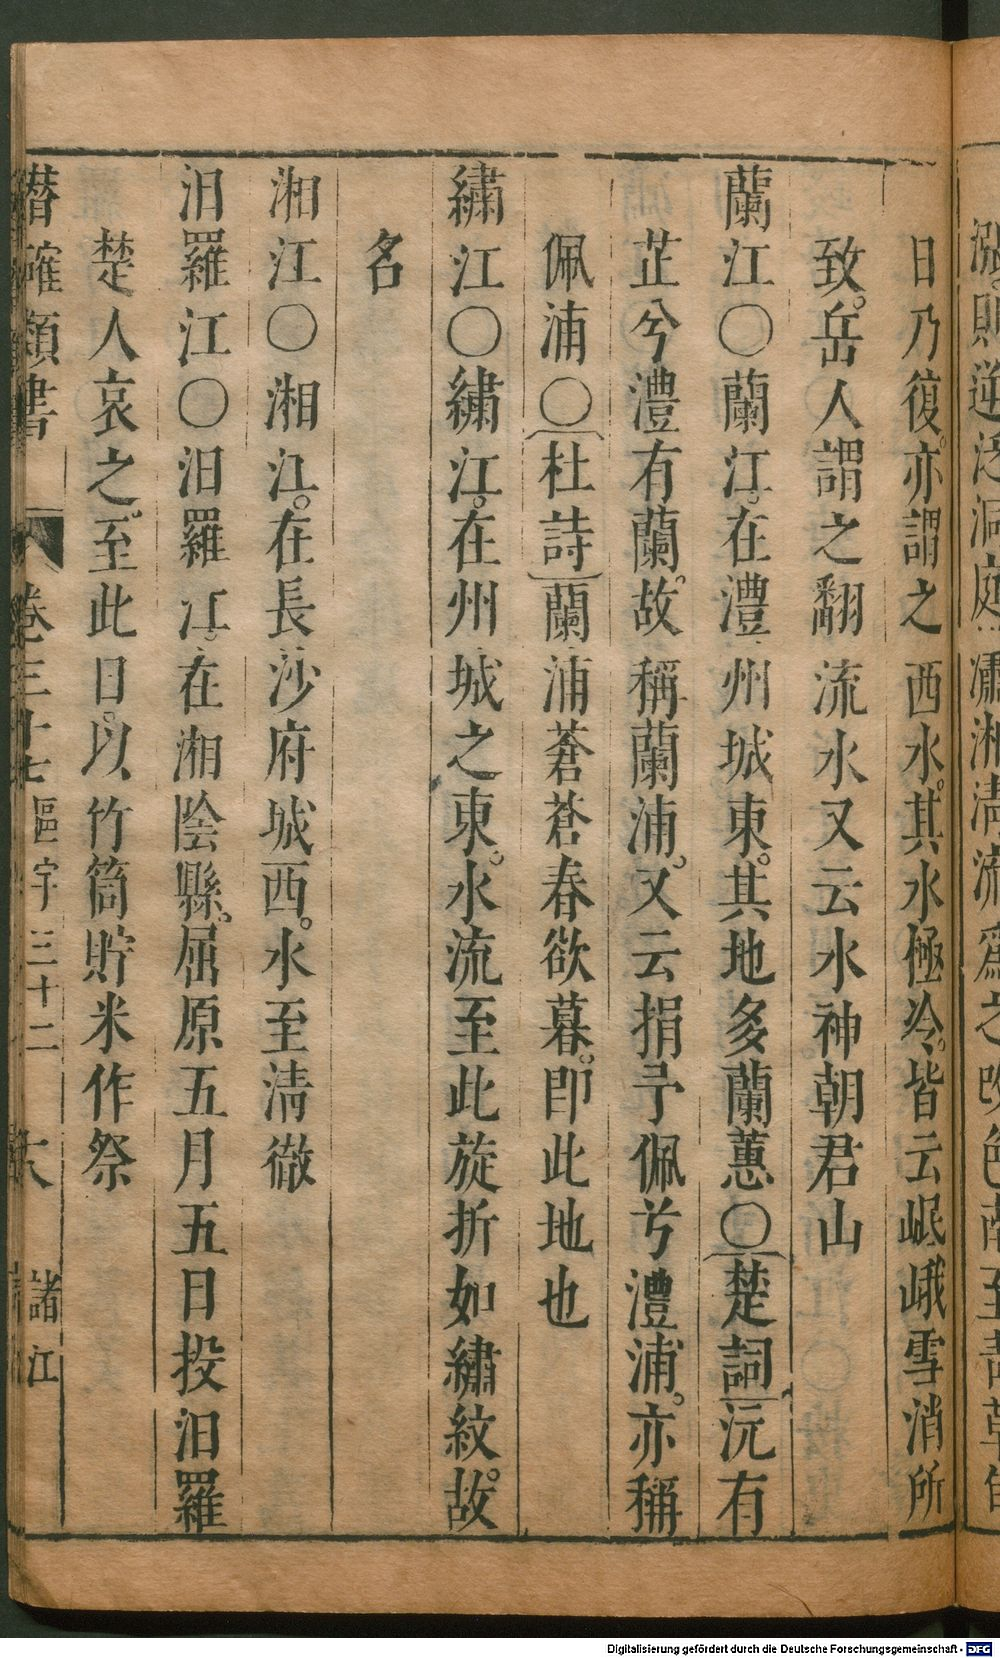 漲則逆泛洞庭瀟湘清流為之改色南至青草旬
日乃復亦謂之西水其水極冷皆云岷峨雪消所
致岳人謂之翻流水又云水神朝君山
蘭江〇蘭江在澧州城東其地多蘭蕙〇楚詞沅有
芷兮澧有蘭故稱蘭浦又云捐予佩兮澧浦亦稱
佩浦〇杜詩蘭浦蒼蒼春欲暮即此地也
繡江〇繡江在州城之東水流至此旋折如繡紋故
名
湘江〇湘江在長沙府城西水至清徹
汨羅江〇汨羅江在湘陰縣屈原五月五日投汨羅
楚人哀之至此日以竹筒貯米作祭
潛確類書 卷三十七 區宇三十二 諸江
Digitalisierung gefördert durch die Deutsche Forschungsgemeinschaft - DFG